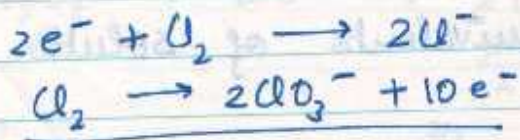 2e⁻ + Cl₂ ⟶ 2Cl⁻
Cl₂ ⟶ 2ClO₃⁻ + 10e⁻